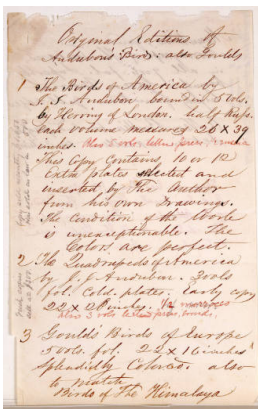 Original Editions of
Audubon's Birds. also Gould's
1 The Birds of America by
J. J. Audubon bound in 5 vols.
by Herring of London. half Russ.
Each volume measures 26 X 39
inches. Also 5 vols. letter press,
This Copy Contains, 10 or 12
Extra plates selected and
inserted by The Author
from his own Drawings.
The Condition of the Work
is unexceptionable. The
Colors are perfect.
2 The Quadrupeds of America
by J. J. Audubon. 2 vols
fol. Cold. plates. Early copy
22 X 28 inches. 1/2 morocco
also 3 vols letter press, bound.
3 Gould's Birds of Europe
5 vols. fol. 22 X 16 inches
Splendidly Colored. also
to match
Birds of The Himalaya